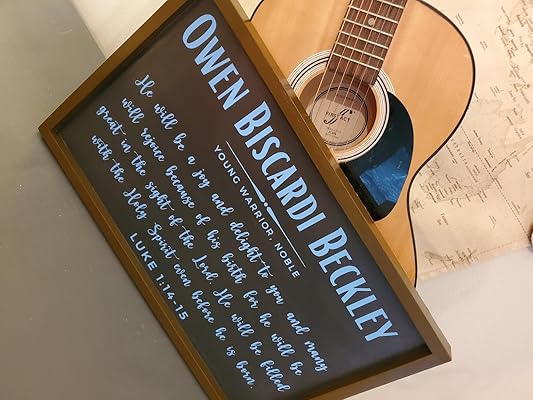 OWEN BISCARDI BECKLEY
YOUNG WARRIOR, NOBLE
He will be a joy and delight to you and many
will rejoice because of his birth for he will be
great in the sight of the Lord. He will be filled
with the Holy Spirit even before he is born.
LUKE 1:14-15
FIRST ACT